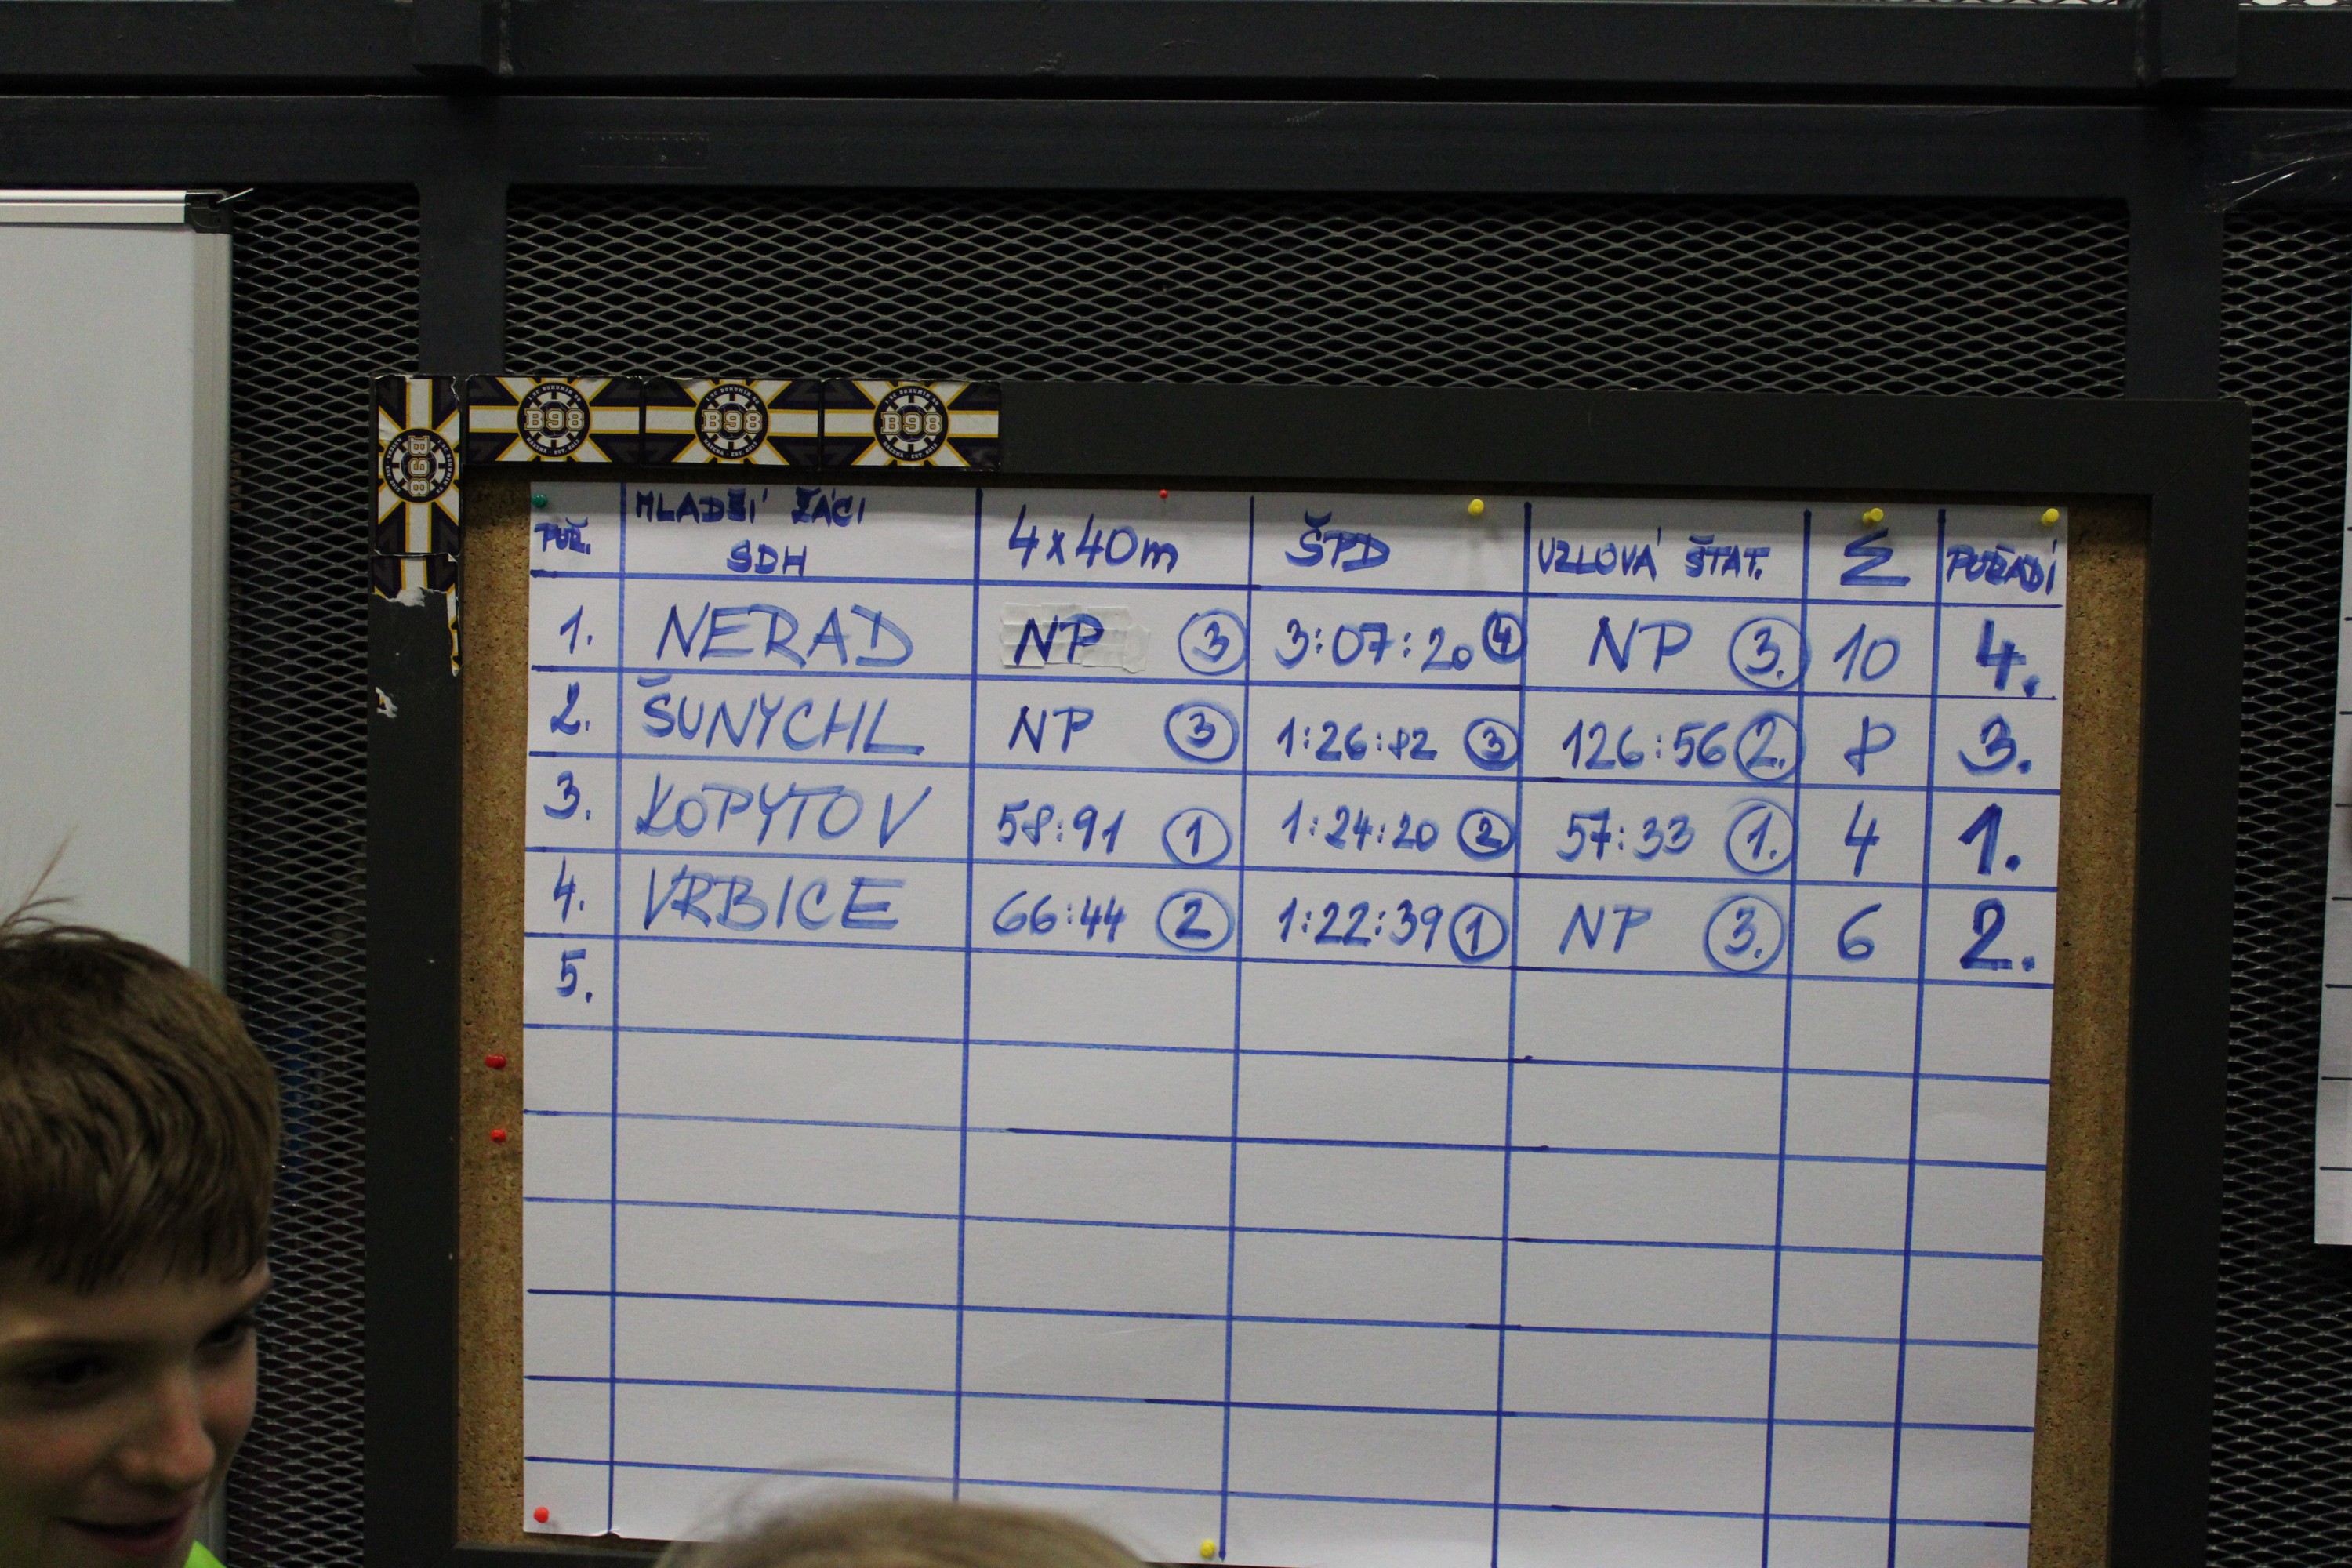 B98
B98
B98
B98
MLADŠÍ ŽÁCI
POŘ. SDH 4x40m ŠPD UZLOVÁ ŠTAF. Σ POŘADÍ
1. NERAD NP 3 3:07:20 4 NP 3. 10 4.
2. ŠUNYCHL NP 3 1:26:82 3 126:56 2. 8 3.
3. KOPYTOV 58:91 1 1:24:20 2 57:33 1. 4 1.
4. VRBICE 66:44 2 1:22:39 1 NP 3. 6 2.
5.